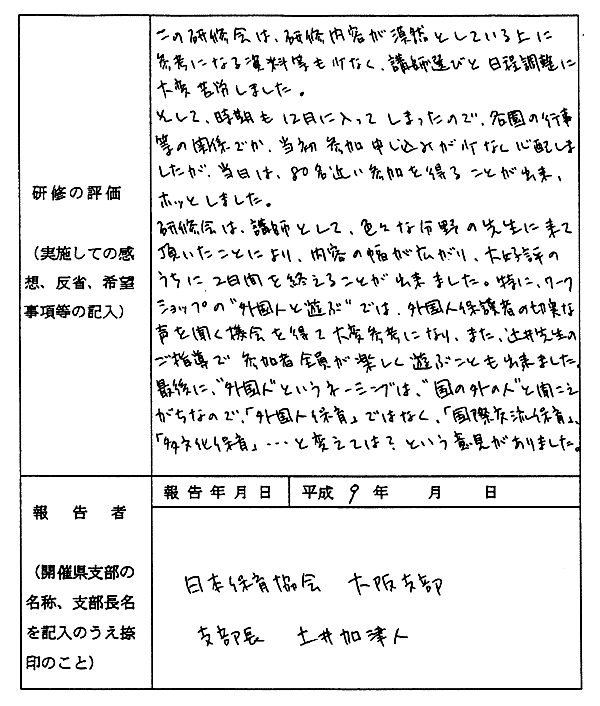 研修の評価
（実施しての感
想、反省、希望
事項等の記入）
この研修会は、研修内容が漠然としている上に
参考になる資料等も少なく、講師選びと日程調整に
大変苦労しました。
そして、時期も12月に入ってしまったので、各園の行事
等の関係でか、当初参加申し込みが少なく心配しま
したが、当日は、80名近い参加を得ることが出来、
ホッとしました。
研修会は、講師として、色々な分野の先生に来て
頂いたことにより、内容の幅が広がり、大好評の
うちに、2日間を終えることが出来ました。特に、ワーク
ショップの"外国人と遊ぶ"では、外国人保護者の切実な
声を聞く機会を得て大変参考になり、また、辻井先生の
ご指導で参加者全員が楽しく遊ぶことも出来ました。
最後に、"外国人"というネーミングは、"国の外の人"と聞こえ
がちなので、「外国人保育」ではなく、「国際交流保育」、
「多文化保育」…と変えては？という意見がありました。
報告者
（開催県支部の
名称、支部長名
を記入のうえ捺
印のこと）
報告年月日 平成9年 月 日
日本保育協会 大阪支部
支部長 土井加津人